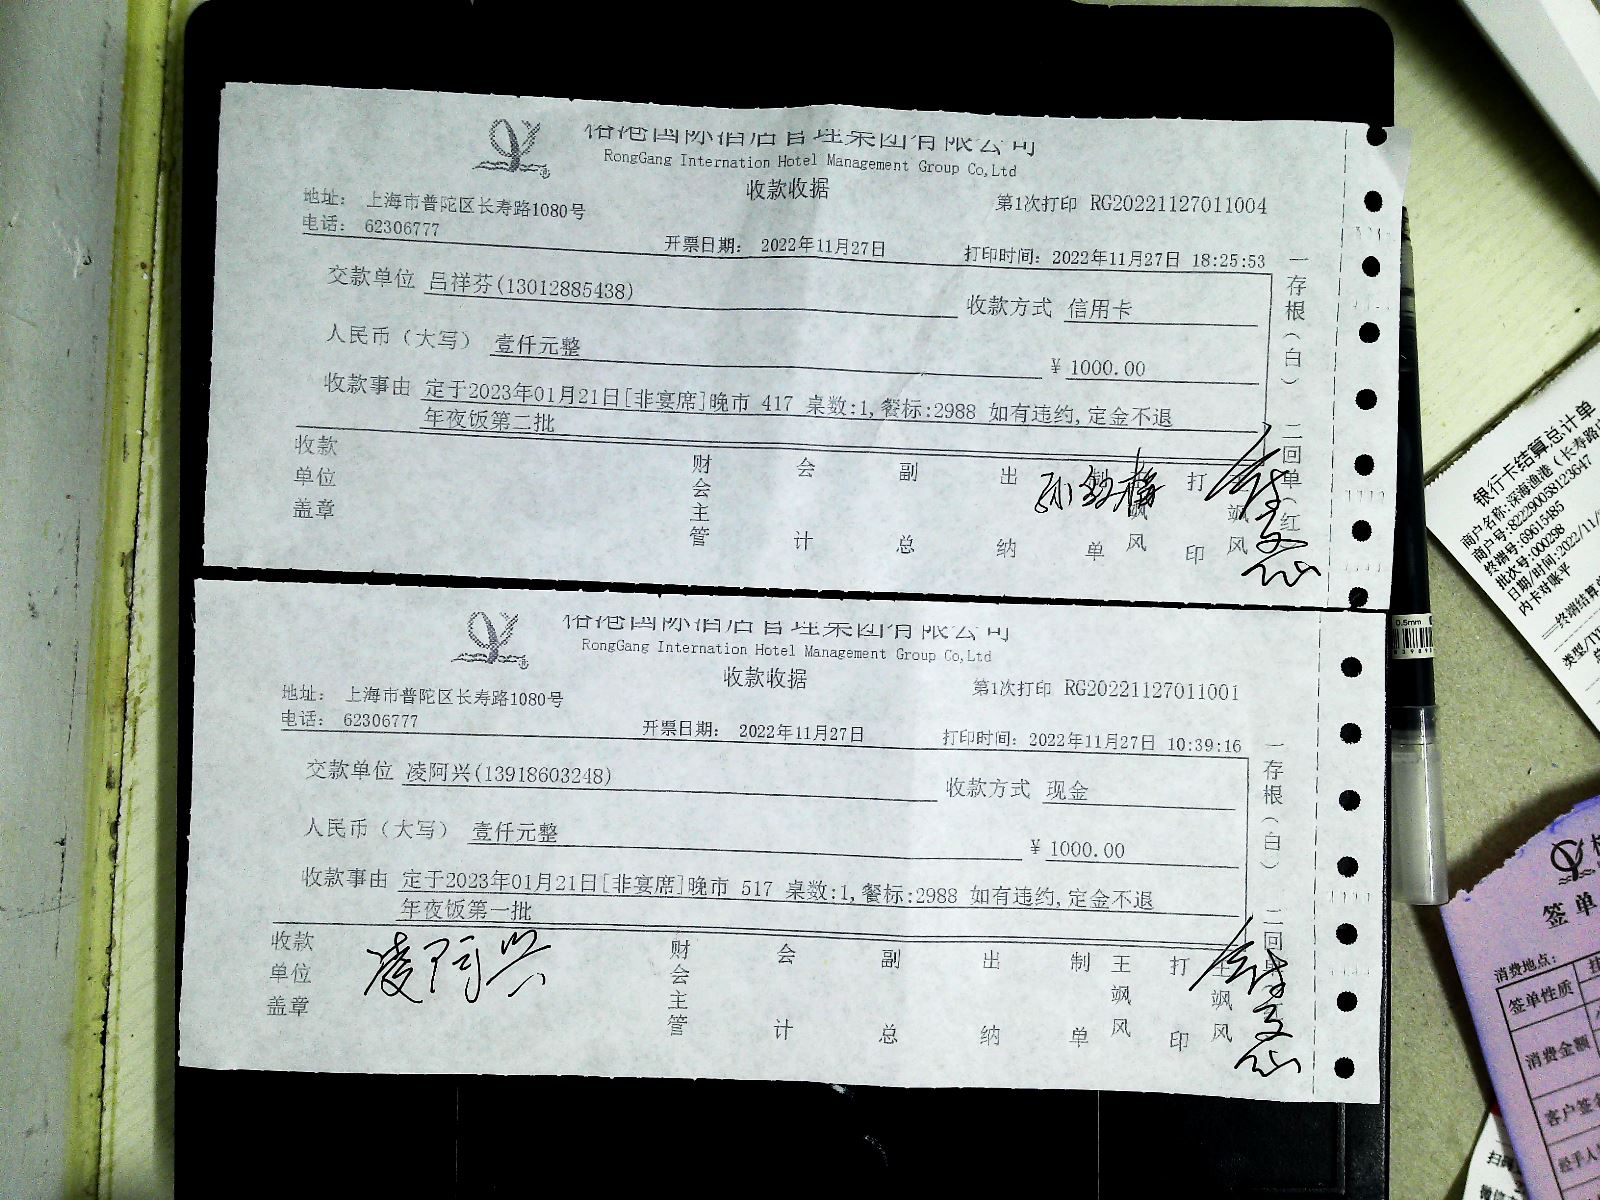 裕港国际酒店管理集团有限公司
RongGang Internation Hotel Management Group Co,Ltd
收款收据
地址： 上海市普陀区长寿路1080号
第1次打印 RG20221127011004
电话： 62306777
开票日期： 2022年11月27日
打印时间：2022年11月27日 18:25:53
交款单位 吕祥芬(13012885438)
收款方式 信用卡
人民币（大写） 壹仟元整
¥ 1000.00
收款事由 定于2023年01月21日[非宴席]晚市 417 桌数:1,餐标:2988 如有违约,定金不退
年夜饭第二批
收款单位盖章
财会主管
会计
副总
出纳
制单
打印
一存根（白） 二回单（红
裕港国际酒店管理集团有限公司
RongGang Internation Hotel Management Group Co,Ltd
收款收据
地址： 上海市普陀区长寿路1080号
第1次打印 RG20221127011001
电话： 62306777
开票日期： 2022年11月27日
打印时间：2022年11月27日 10:39:16
交款单位 凌阿兴(13918603248)
收款方式 现金
人民币（大写） 壹仟元整
¥ 1000.00
收款事由 定于2023年01月21日[非宴席]晚市 517 桌数:1,餐标:2988 如有违约,定金不退
年夜饭第一批
收款单位盖章
凌阿兴
财会主管
会计
副总
出纳
制单 王飒风
打印 王飒风
一存根（白） 二回
0.5mm
银行卡结算总计单
商户名称:深海渔港（长寿路
商户号:822290058123647
终端号:69615485
批次号:000298
日期/时间:2022/11/
内卡对账平
终端结算
类型/TY
签单
消费地点：
签单性质
消费金额
客户签
经手人